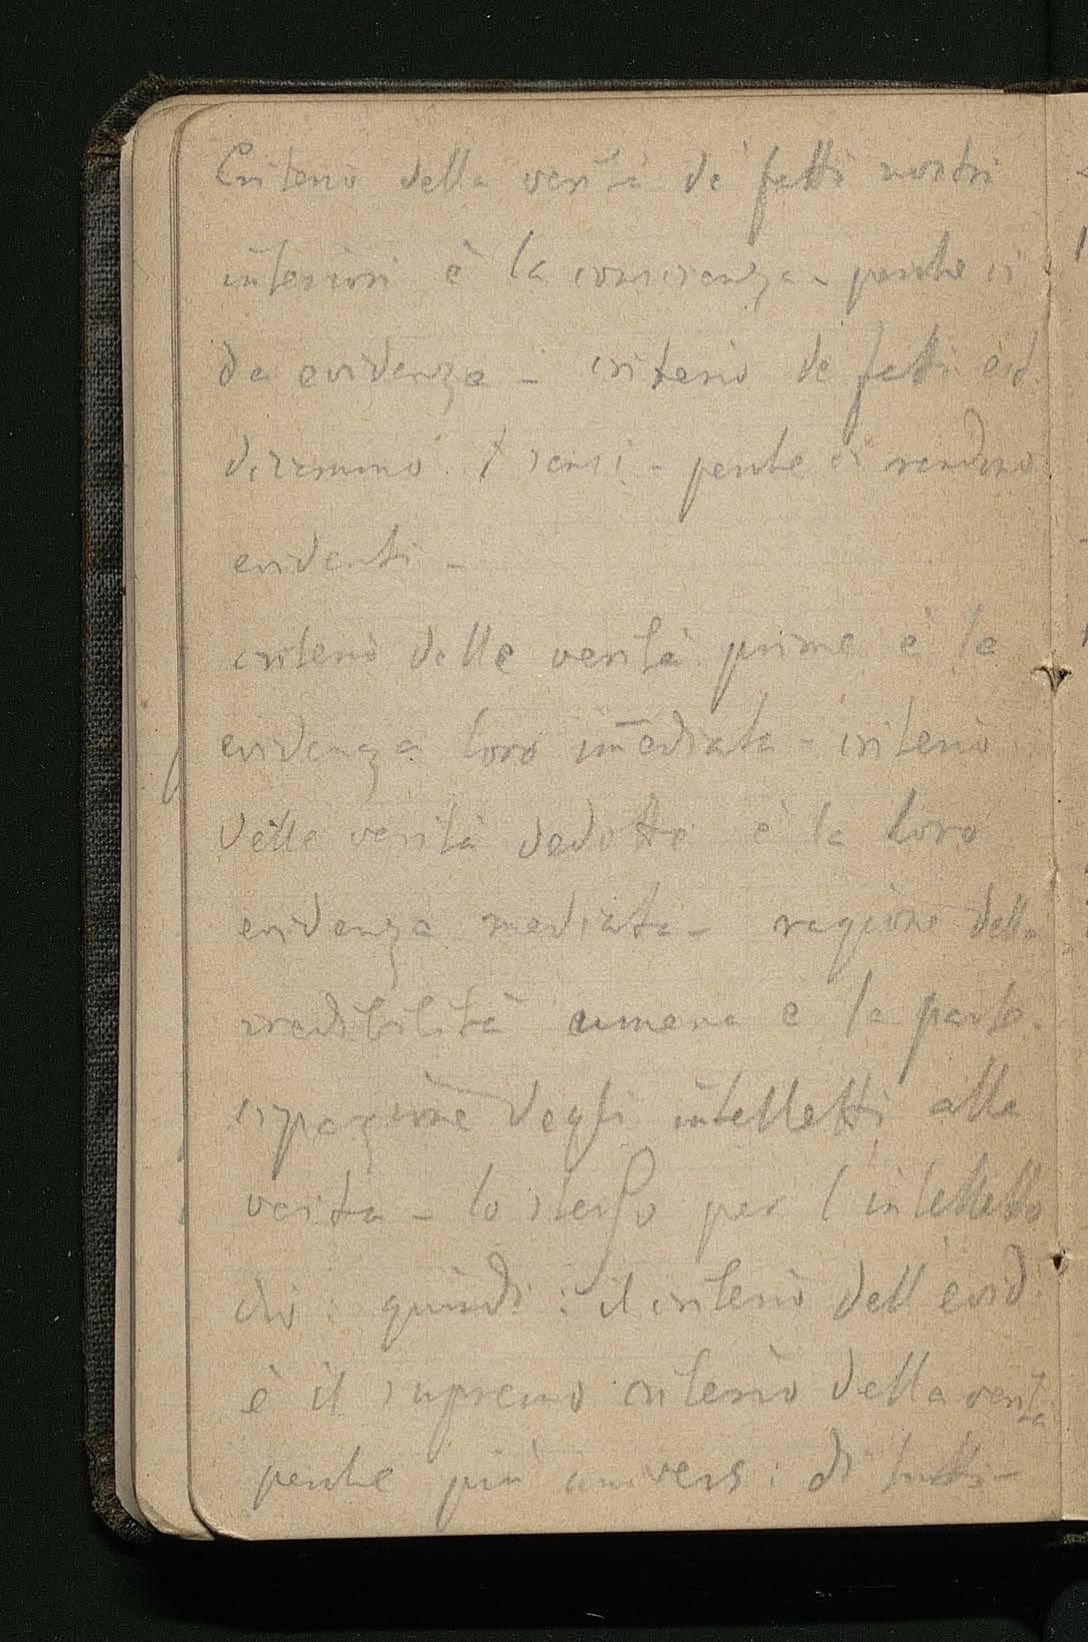 Criterio della verità de fatti nostri
interiori è la conscienza - perche ci
da evidenza - criterio de fatti
sensi - perche ci rendono
evidenti -
criterio delle verità prime è la
evidenza loro im̄ediata - criterio
delle verità dedotte è la loro
evidenza mediata - ragione della
credibilità umana e la parte-
cipazione degli intelletti alla
verita - lo stesso per l intelletto
dio : quindi : il criterio dell evid.
è il supremo criterio della verità
perche più univers : di tutti -